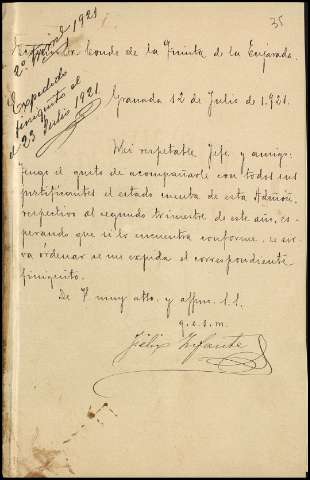 35
2º Trimᵉ 1921
Conde de la Quinta de la Enjarada.
Expedido
finiquito el
el 23 Julio 1921
Granada 12 de Julio de 1.921.
Mi respetable Jefe y amigo:
Tengo el gusto de acompañarle con todos sus
justificantes el estado cuenta de esta Admón,
respectivo al segundo trimestre de este año, es-
perando que si lo encuentra conforme, se sir-
va órdenar se me expida el correspondiente
finiquito.
De V. muy atto. y affmo. s.s.
q.e.s.m.
Félix Infante